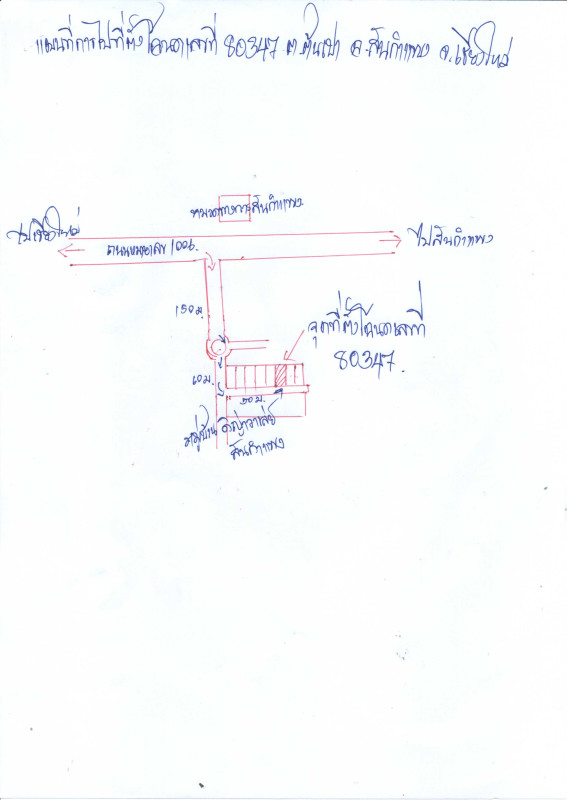 แผนที่การไปที่ตั้งโฉนดเลขที่ 80347 ต.ต้นเปา อ.สันกำแพง จ.เชียงใหม่
หมวดทางการสันกำแพง
ไปเชียงใหม่
ถนนหมายเลข 1006
ไปสันกำแพง
150 ม.
จุดที่ตั้งโฉนดเลขที่
80347
60 ม.
50 ม.
หมู่บ้าน
สันกำแพง